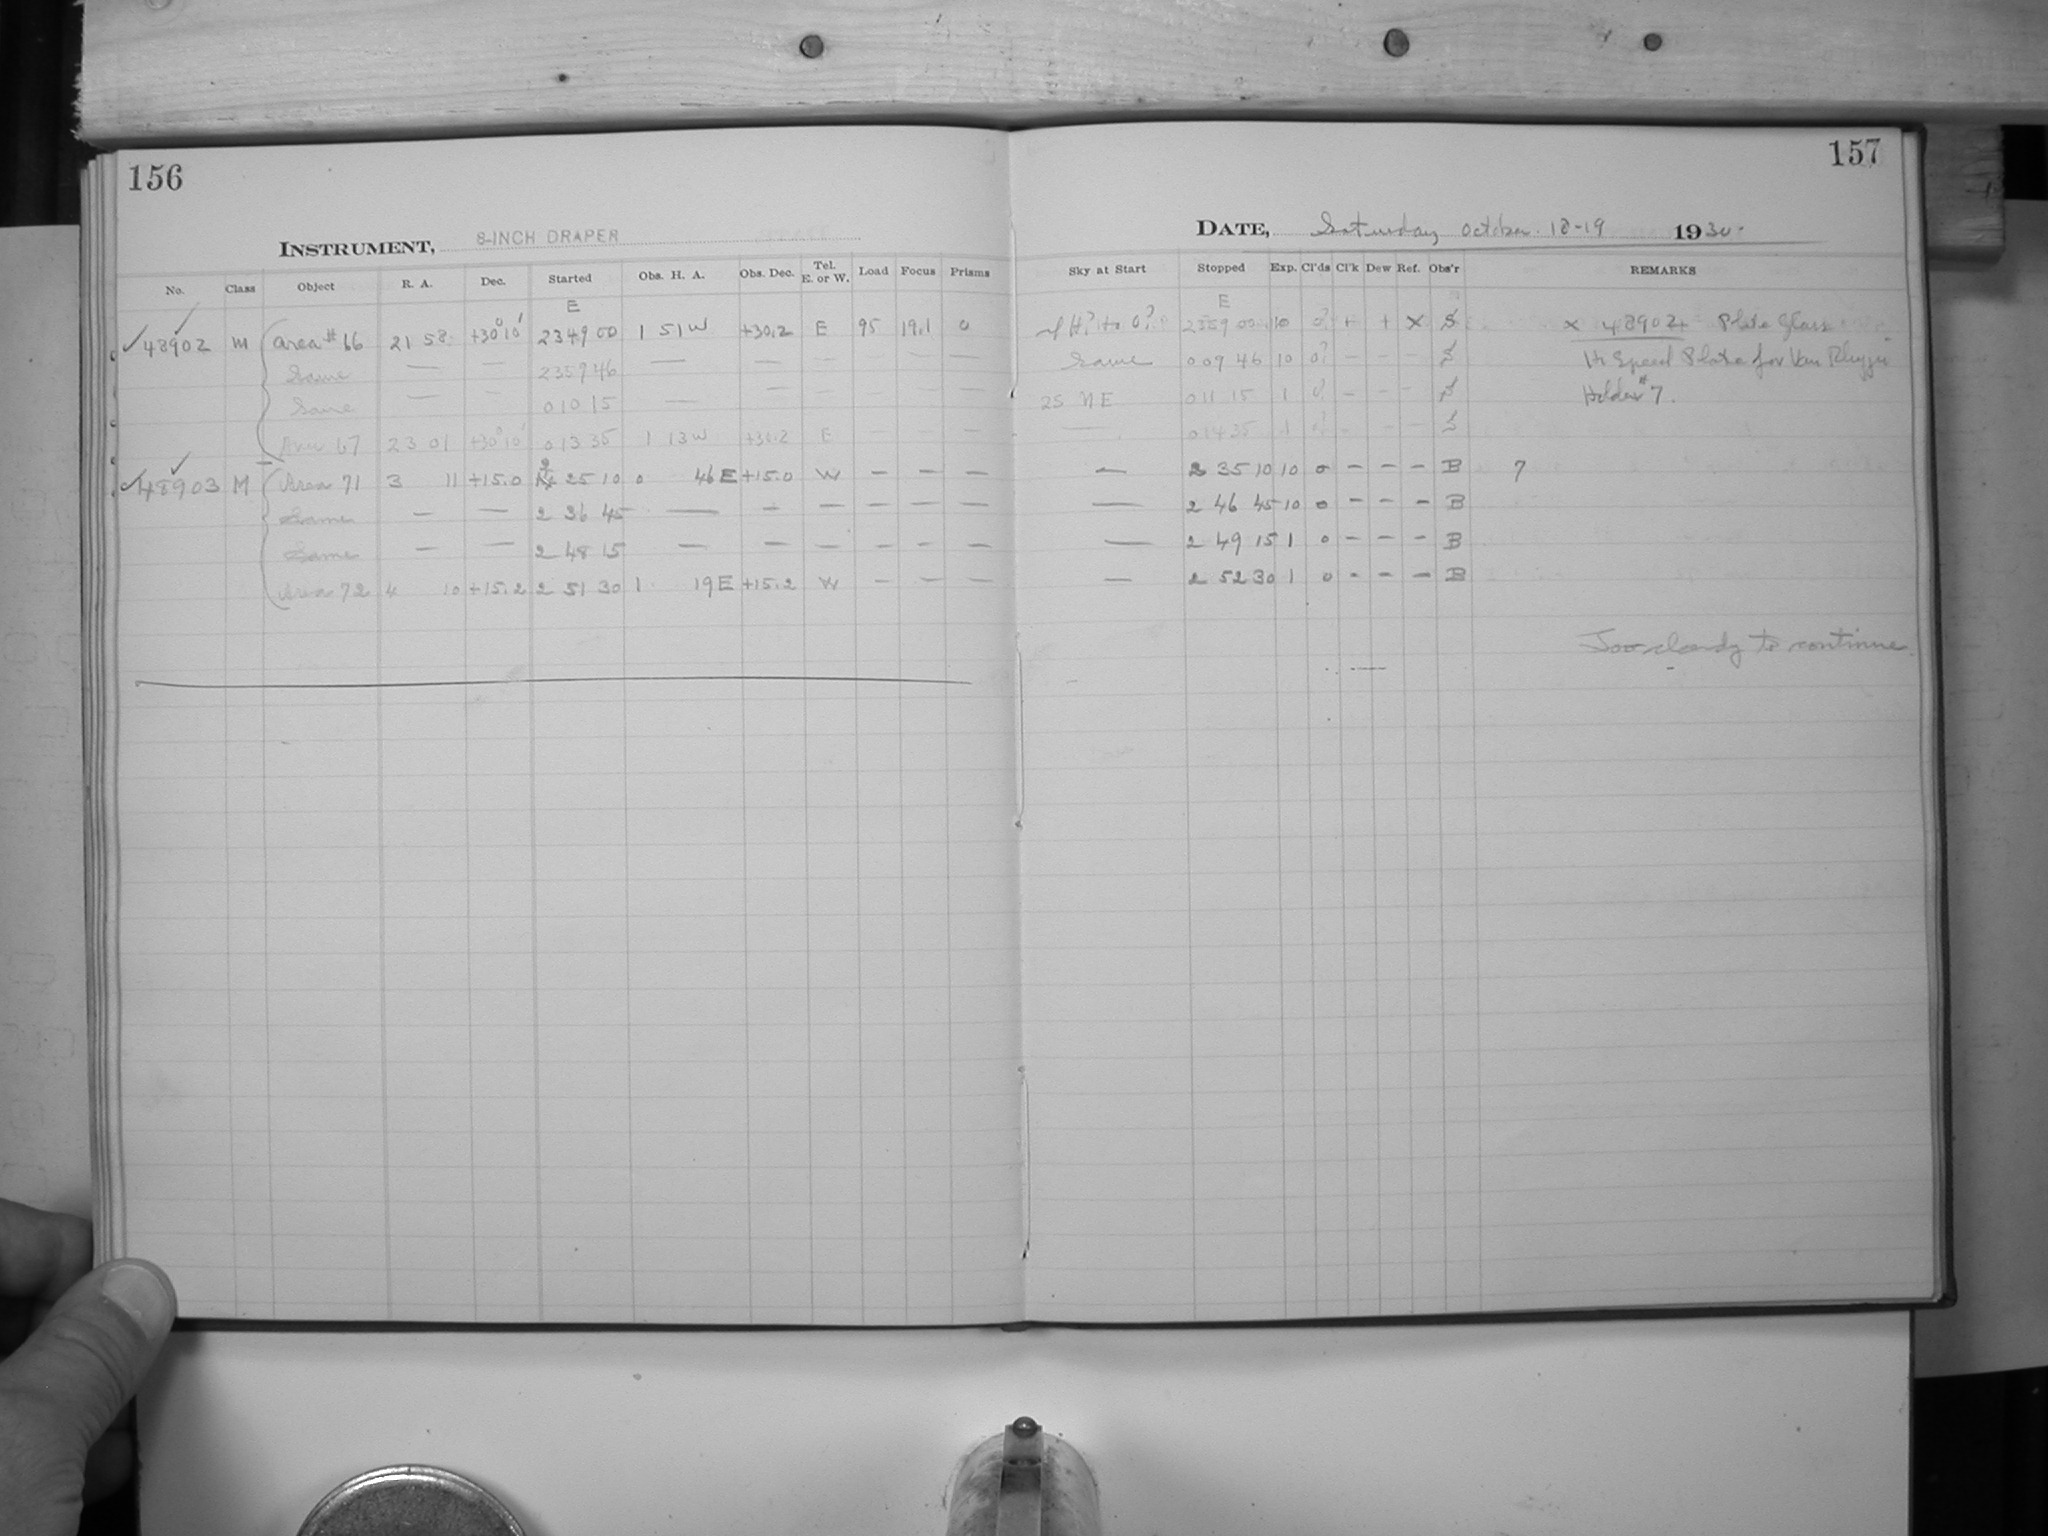 156
INSTRUMENT, 8-INCH DRAPER
No. Class Object R. A. Dec. Started Obs. H. A. Obs. Dec. Tel. E. or W. Load Focus Prisms
E
48902 M Area #66 21 58 +30°10' 23 49 00 1 51 W +30.2 E 95 19.1 0
Same — — 23 59 46 — — — — — —
Same — — 0 10 15 — — — — — —
Area 67 23 01 +30°10' 0 13 35 1 13 W +30.2 E — — —
48903 M Area 71 3 11 +15.0 2 25 10 0 46 E +15.0 W — — —
Same — — 2 36 45 — — — — — —
Same — — 2 48 15 — — — — — —
Area 72 4 10 +15.2 2 51 30 1 19 E +15.2 W — — —
157
DATE, Saturday October 18-19 1930.
Sky at Start Stopped Exp. Cl'ds Cl'k Dew Ref. Obs'r REMARKS
E
H? to 0? 23 59 00 10 0? + + X S x 48902 Plate Glass
Same 0 09 46 10 0? — — S Hi Speed Plate for Van
2S NE 0 11 15 1 0? — — — S Holder #7.
— 0 14 35 1 0? — — S
— 2 35 10 10 0 — — — B 7
— 2 46 45 10 0 — — — B
— 2 49 15 1 0 — — — B
— 2 52 30 1 0 — — — B
Too cloudy to continue.